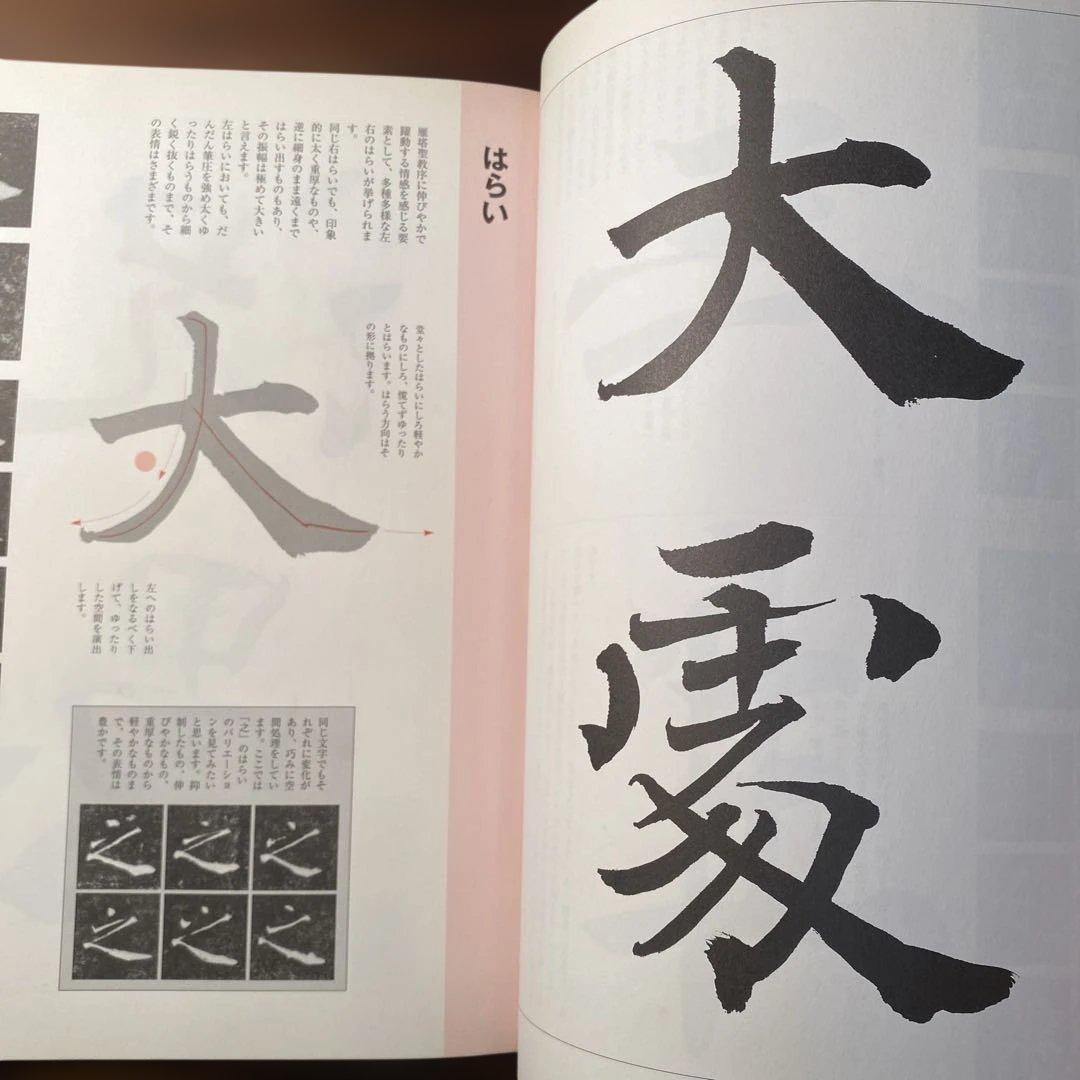 大
はらい
雁塔聖教序に伸びやかで
躍動する情感を感じる要
素として、多種多様な左
右のはらいが挙げられま
す。
同じ右はらいでも、印象
的に太く重厚なものや、
逆に細身のまま遠くまで
はらい出すものもあり、
その振幅は極めて大きい
と言えます。
左はらいにおいても、だ
んだん筆圧を強め太くゆ
ったりはらうものから細
く鋭く抜くものまで、そ
の表情はさまざまです。
堂々としたはらいにしろ軽やか
なものにしろ、慌てずゆったり
とはらいます。はらう方向はそ
の形に拠ります。
大
左へのはらい出
しをなるべく下
げて、ゆったり
した空間を演出
します。
同じ文字でもそ
れぞれに変化が
あり、巧みに空
間処理をしてい
ます。ここでは
「之」のはらい
のバリエーショ
ンを見てみたい
と思います。抑
制したもの、伸
びやかなもの、
重厚なものから
軽やかなものま
で、その表情は
豊かです。
之
之
之
之
之
之